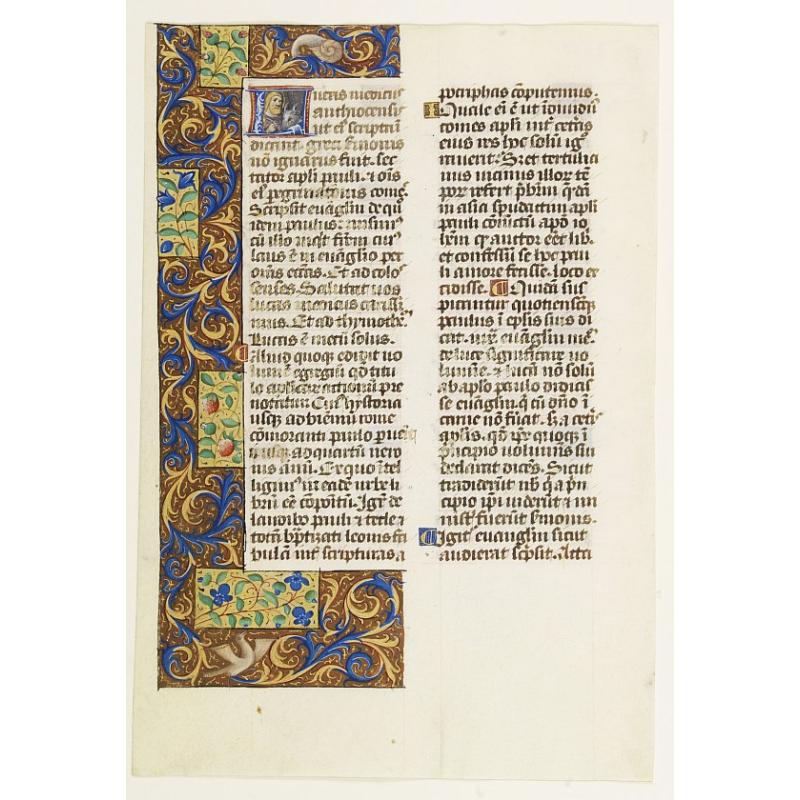 Lucas medicus
anthiocensis
ut eiꝰ scripta
dicunt. greci sermonis
nō ignarus fuit. sec
tator apli pauli. ⁊ oīs
eiꝰ pegrinationis comes.
Scripsit euāgliū de quo
idem paulus: misimꝰ
cū illo inqͥt frēm cuiꝰ
laus ē in euāglio per
omēs eccias. Et ad colo
senses. Salutat uos
lucas medicus carissi
mus. Et ad thymotheū.
Lucas ē mecū solus.
Aliud quoqꝫ edidit uo
lumē egregiū qd titu
lo
pre
notatur. Cuiꝰ hystoria
usqꝫ ad bienniū rome
cōmorantis pauli puenit
id est usqꝫ ad quartū nero
nis annū. Ex quo ītel
ligimꝰ in eadē urbe li
brū eē cōpositū. Igitͬ
pauli ⁊ tecle ⁊
totā baptizati leonis fa
bulā inť scripturas a
pocriphas cōputemus.
Quale eī ē ut īdiuiduꝰ
comes apli inť ceteras
eiꝰ res hoc solū ig
nuerit. Sꝫ et tertulia
nus uicinus illorꝫ tē
porꝫ refert p̄brm qͥdā
in asia
apli
pauli cōuictū apd̄ io
hēm qͥ auctor eēt lib.
et confessū se hoc pau
li amore fecisse. loco ex
cidisse. Quidā sus
picantur quotiescūqꝫ
paulus ī eplis suis di
cat. iuxͣ euāgliū meū
de luce significare uo
lumīe. ⁊ lucā nō solū
ab aplo paulo didicis
se euāgliū. qͥ cū dn̄o ī
carne nō fuerat. sꝫ a ceťis
aplis. qd̄ ipe quoqꝫ ī
pͥncipio uoluminis sui
declarat dicēs. Sicut
tradiderūt nob qͥ a pͥn
cipio ipi uiderūt ⁊ mi
nistͥ fuerūt sermonis.
Igitͬ euāgliū sicut
audierat scͥpsit. Acta